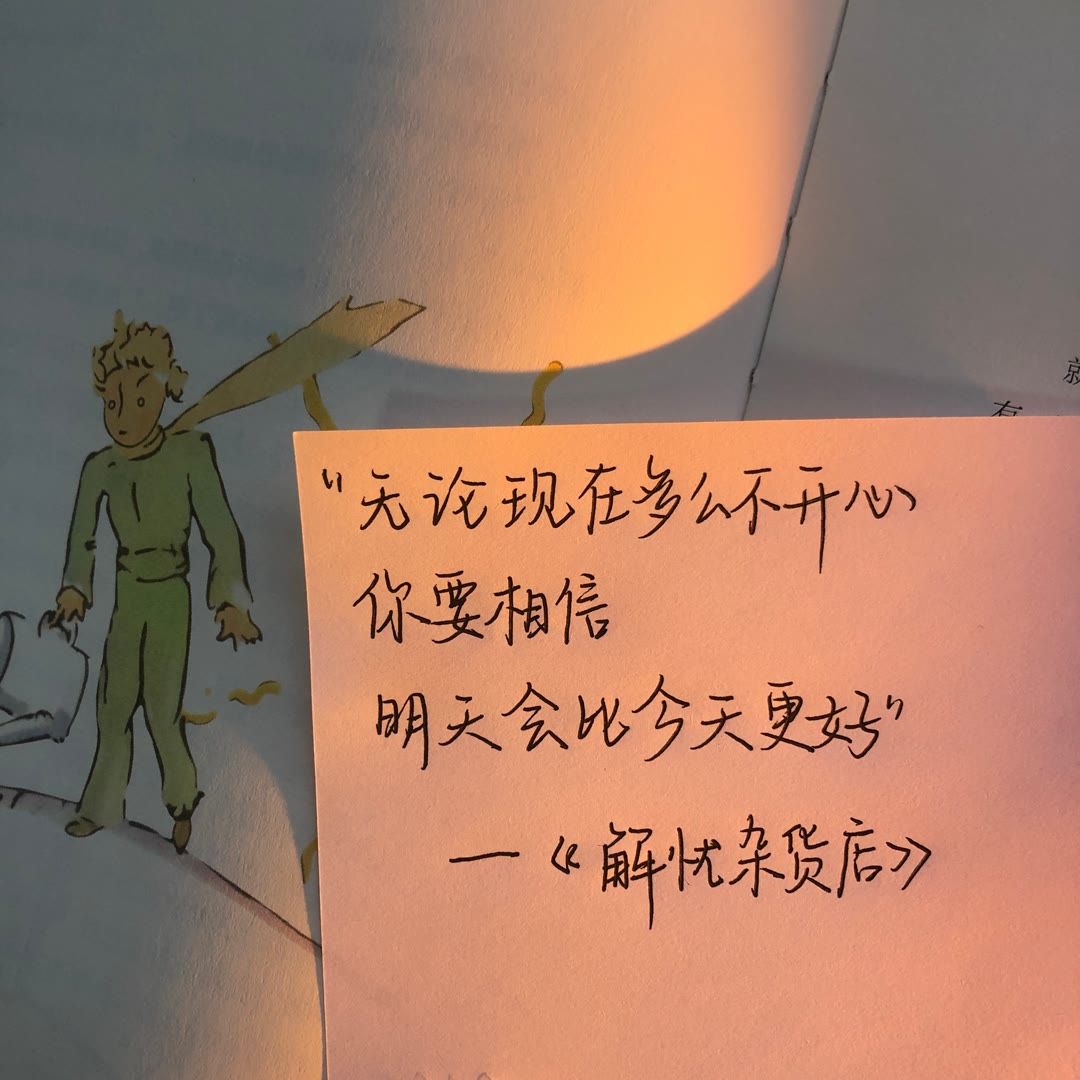 就
有
“无论现在多么不开心
你要相信
明天会比今天更好”
—《解忧杂货店》